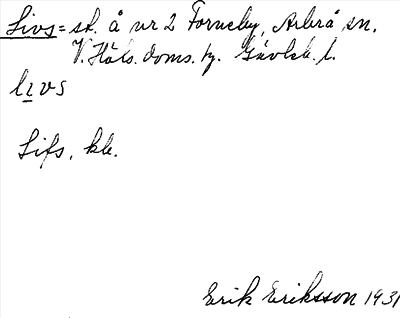 Livs = sk. å nr 2 Forneby, Arbrå sn.
V. Häls. doms. hg. Gävleb. l.
livs
Lifs, kk.
Erik Eriksson 1931